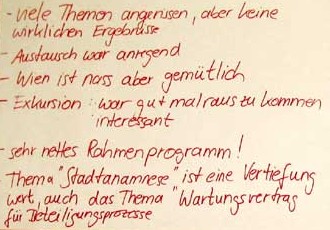 - viele Themen angerissen, aber keine
wirklichen Ergebnisse
- Austausch war anregend
- Wien ist nass aber gemütlich
- Exkursion: war gut mal raus zu kommen
interessant
- sehr nettes Rahmenprogramm!
Thema "Stadtanamnese" ist eine Vertiefung
wert, auch das Thema "Wartungsvertrag
für Beteiligungsprozesse